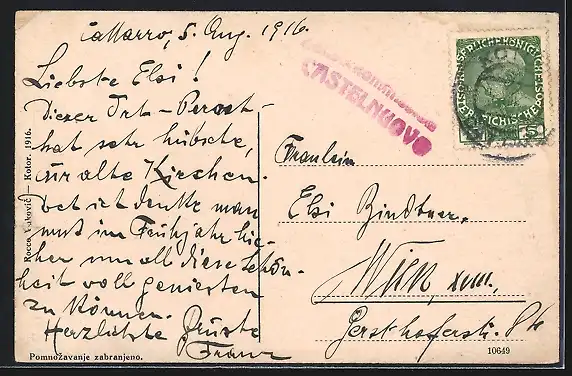 Cattaro, 5. Aug. 1916.
Liebste Elsi!
Dieser Ort - Perast -
hat sehr hübsche,
uralte Kirchen.
man
muss im Frühjahr hie-
her um all diese Schön-
heit voll geniessen
zu können.
Herzlichste Grüsse
Franz
Rocco Vuković — Kotor. 1916.
Pomnožavanje zabranjeno.
CASTELNUOVO
KAISERLICHE KÖNIGLICHE
ÖSTERREICHISCHE POST
5
Fräulein
Elsi Bindtner,
Wien, XVIII.,
Gersthoferstr.
10649